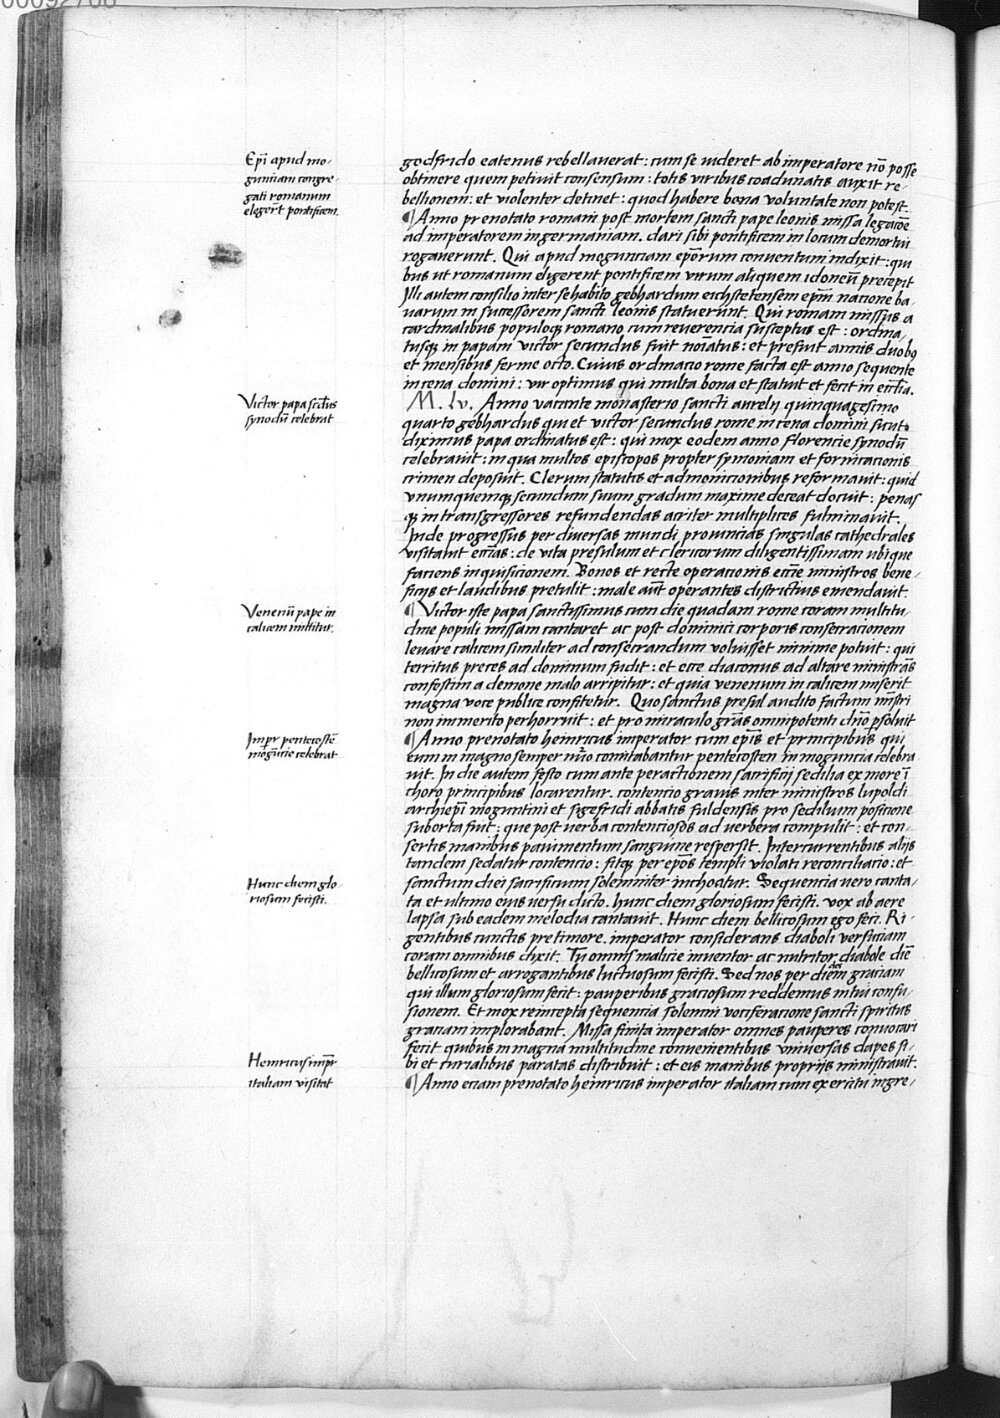 00092708
Ep̄i apud mo-
guntiam congre-
gati romanum
elegert̄ pontificem.
godfrido eatenus rebellauerat: cum se uideret ab imperatore nō posse
obtinere quem petiuit consensum: totis viribus coadunatis auxit re-
bellionem: et violenter detinet: quod habere bona voluntate non potest.
¶ Anno prenotato romani post mortem sancti pape leonis missa legacōe
ad imperatorem in germaniam. dari sibi pontificem in locum demortui
rogauerunt. Qui apud mogunciam ep̄orum conuentum indixit: qui
bus ut romanum eligerent pontificem virum aliquem idoneū precepit
Illi autem consilio inter se habito gebhardum eichstetensem ep̄m nacione ba-
uarum in successorem sancti leonis statuerunt. Qui romam missus a
cardinalibus populoqȝ romano cum reuerencia susceptus est: ordina-
tusqȝ in papam victor secundus fuit noīatus: et prefuit annis duobȝ
et mensibus ferme octo. Cuius ordinacio rome facta est anno sequente
in cena domini: vir optimus qui multa bona et statuit et fecit in eccl̄ia.
Victor papa scd̄us
synodū celebrat
M. lv. Anno vacante monasterio sancti aurelij quinquagesimo
quarto gebhardus qui et victor secundus rome in cena domini sicut
diximus papa ordinatus est: qui mox eodem anno Florencie synodū
celebrauit: in qua multos episcopos propter symoniam et fornicacionis
crimen deposuit. Clerum statutis et admonicionibus reformauit: quid
vnumquemqȝ secundum suum gradum maxime deceat docuit: penas
qȝ in transgressores refundendas acriter multiplices fulminauit.
Inde progressus per diuersas mundi prouincias singulas cathedrales
visitauit ecc̄ias: de vita presulum et clericorum diligentissimam ubique
faciens inquisicionem. Bonos et recte operacionis ecc̄ie ministros bene-
ficijs et laudibus pretulit: male aut̄ operantes districtius emendauit.
Venenū pape in
calicem mittitur.
¶ Victor iste papa sanctissimus cum die quadam rome coram multitu
dine populi missam cantaret ac post dominici corporis consecracionem
leuare calicem similiter ad consecrandum voluisset minime potuit: qui
territus preces ad dominum fudit: et ecce diaconus ad altare ministrās
confestim a demone malo arripitur: et quia venenum in calicem miserit
magna voce publice confitetur. Quo sanctus presul audito factum mīstri
non immerito perhorruit: et pro miraculo grās omnipotenti dn̄o psoluit
Imp̄r pentecostē
mogūcie celebrat
¶ Anno prenotato heinricus imperator cum ep̄is et principibus qui
eum in magno semper nūo comitabantur pentecosten in moguncia celebra
uit. In die autem festo cum ante peractionem sacrificij sedilia ex more ī
choro principibus locarentur. contencio grauis inter ministros lupoldi
archiep̄i moguntini et sigefridi abbatis fuldensis pro sedilium posicione
suborta fuit: que post verba contenciosos ad verbera compulit: et con-
sertis manibus pauimentum sanguine respersit. Intercurrentibus alijs
tandem sedatur contencio: fitqȝ per ep̄os templi violati reconciliacio: et
Hunc diem glo-
riosum fecisti.
sanctum diei sacrificium solemniter inchoatur. Sequencia uero canta-
ta et ultimo eius versu dicto. hunc diem gloriosum fecisti. vox ab aere
lapsa sub eadem melodia cantauit. Hunc diem bellicosum ego feci. Ri-
gentibus cunctis pre timore. imperator considerans diaboli versuciam
coram omnibus dixit. Tu omnis malicie inuentor ac nutritor diabole diē
bellicosum et arrogantibus luctuosum fecisti. Sed nos per diuinam graciam
qui illum gloriosum fecit: pauperibus graciosum reddemus in tui confu-
sionem. Et mox reincepta sequencia solemni vociferacione sancti spiritus
graciam implorabant. Missa finita imperator omnes pauperes conuocari
fecit quibus in magna multitudine conuenientibus vniuersas dapes si-
Heinricus imp̄r
italiam visitat
bi et curialibus paratas distribuit: et eis manibus proprijs ministrauit.
¶ Anno eciam prenotato heinricus imperator italiam cum exercitu ingre-